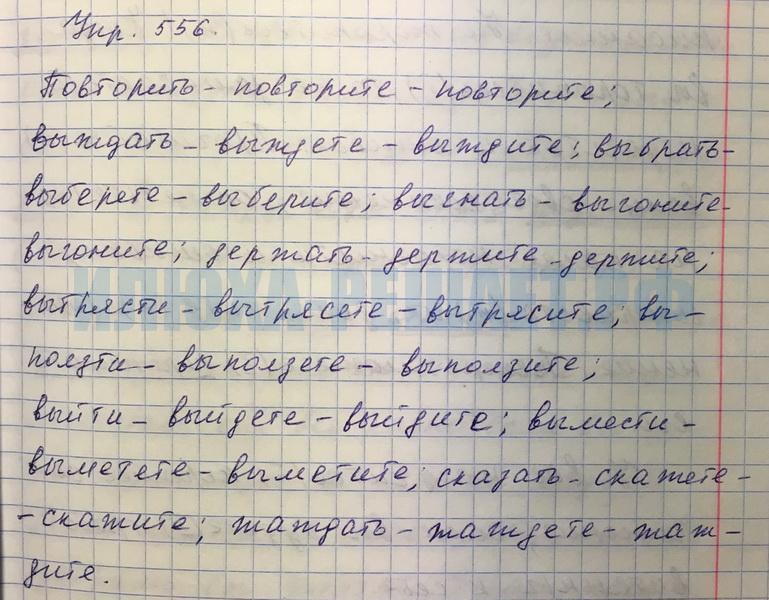 Упр. 556.
Повторить - повторите - повторите;
выждать - выждете - выждите; выбрать-
выберете - выберите; выгнать - выгоните-
выгоните; держать - держите - держите;
ИЛЮХА РЕШАЕТ.РФ
вытрясти - вытрясете - вытрясите; вы-
ползти - выползете - выползите;
выйти - выйдете - выйдите; вымести -
выметете - выметите; сказать - скажете -
- скажите; жаждать - жаждете - жаж-
дите.